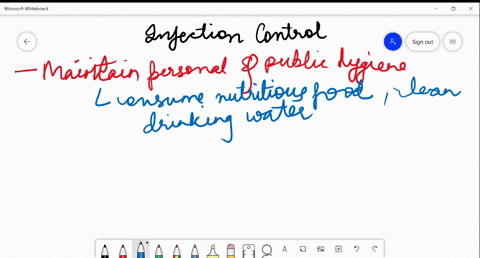 Microsoft Whiteboard
Infection Control
Sign out
— Maintain personal & public hygiene
└ consume nutritious food, clean
drinking water